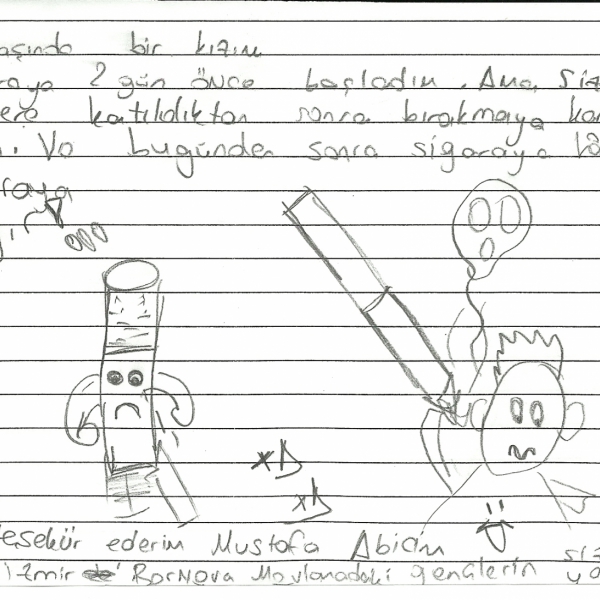 aşında bir kızım
raya 2 gün önce başladım. Ama siz
ere katıldıktan sonra bırakmaya ka
. Ve bugünden sonra sigaraya
raya
xD
xD
eşekür ederim Mustafa Abicim siz
izmir Bornova Mevlanadaki gençlerin